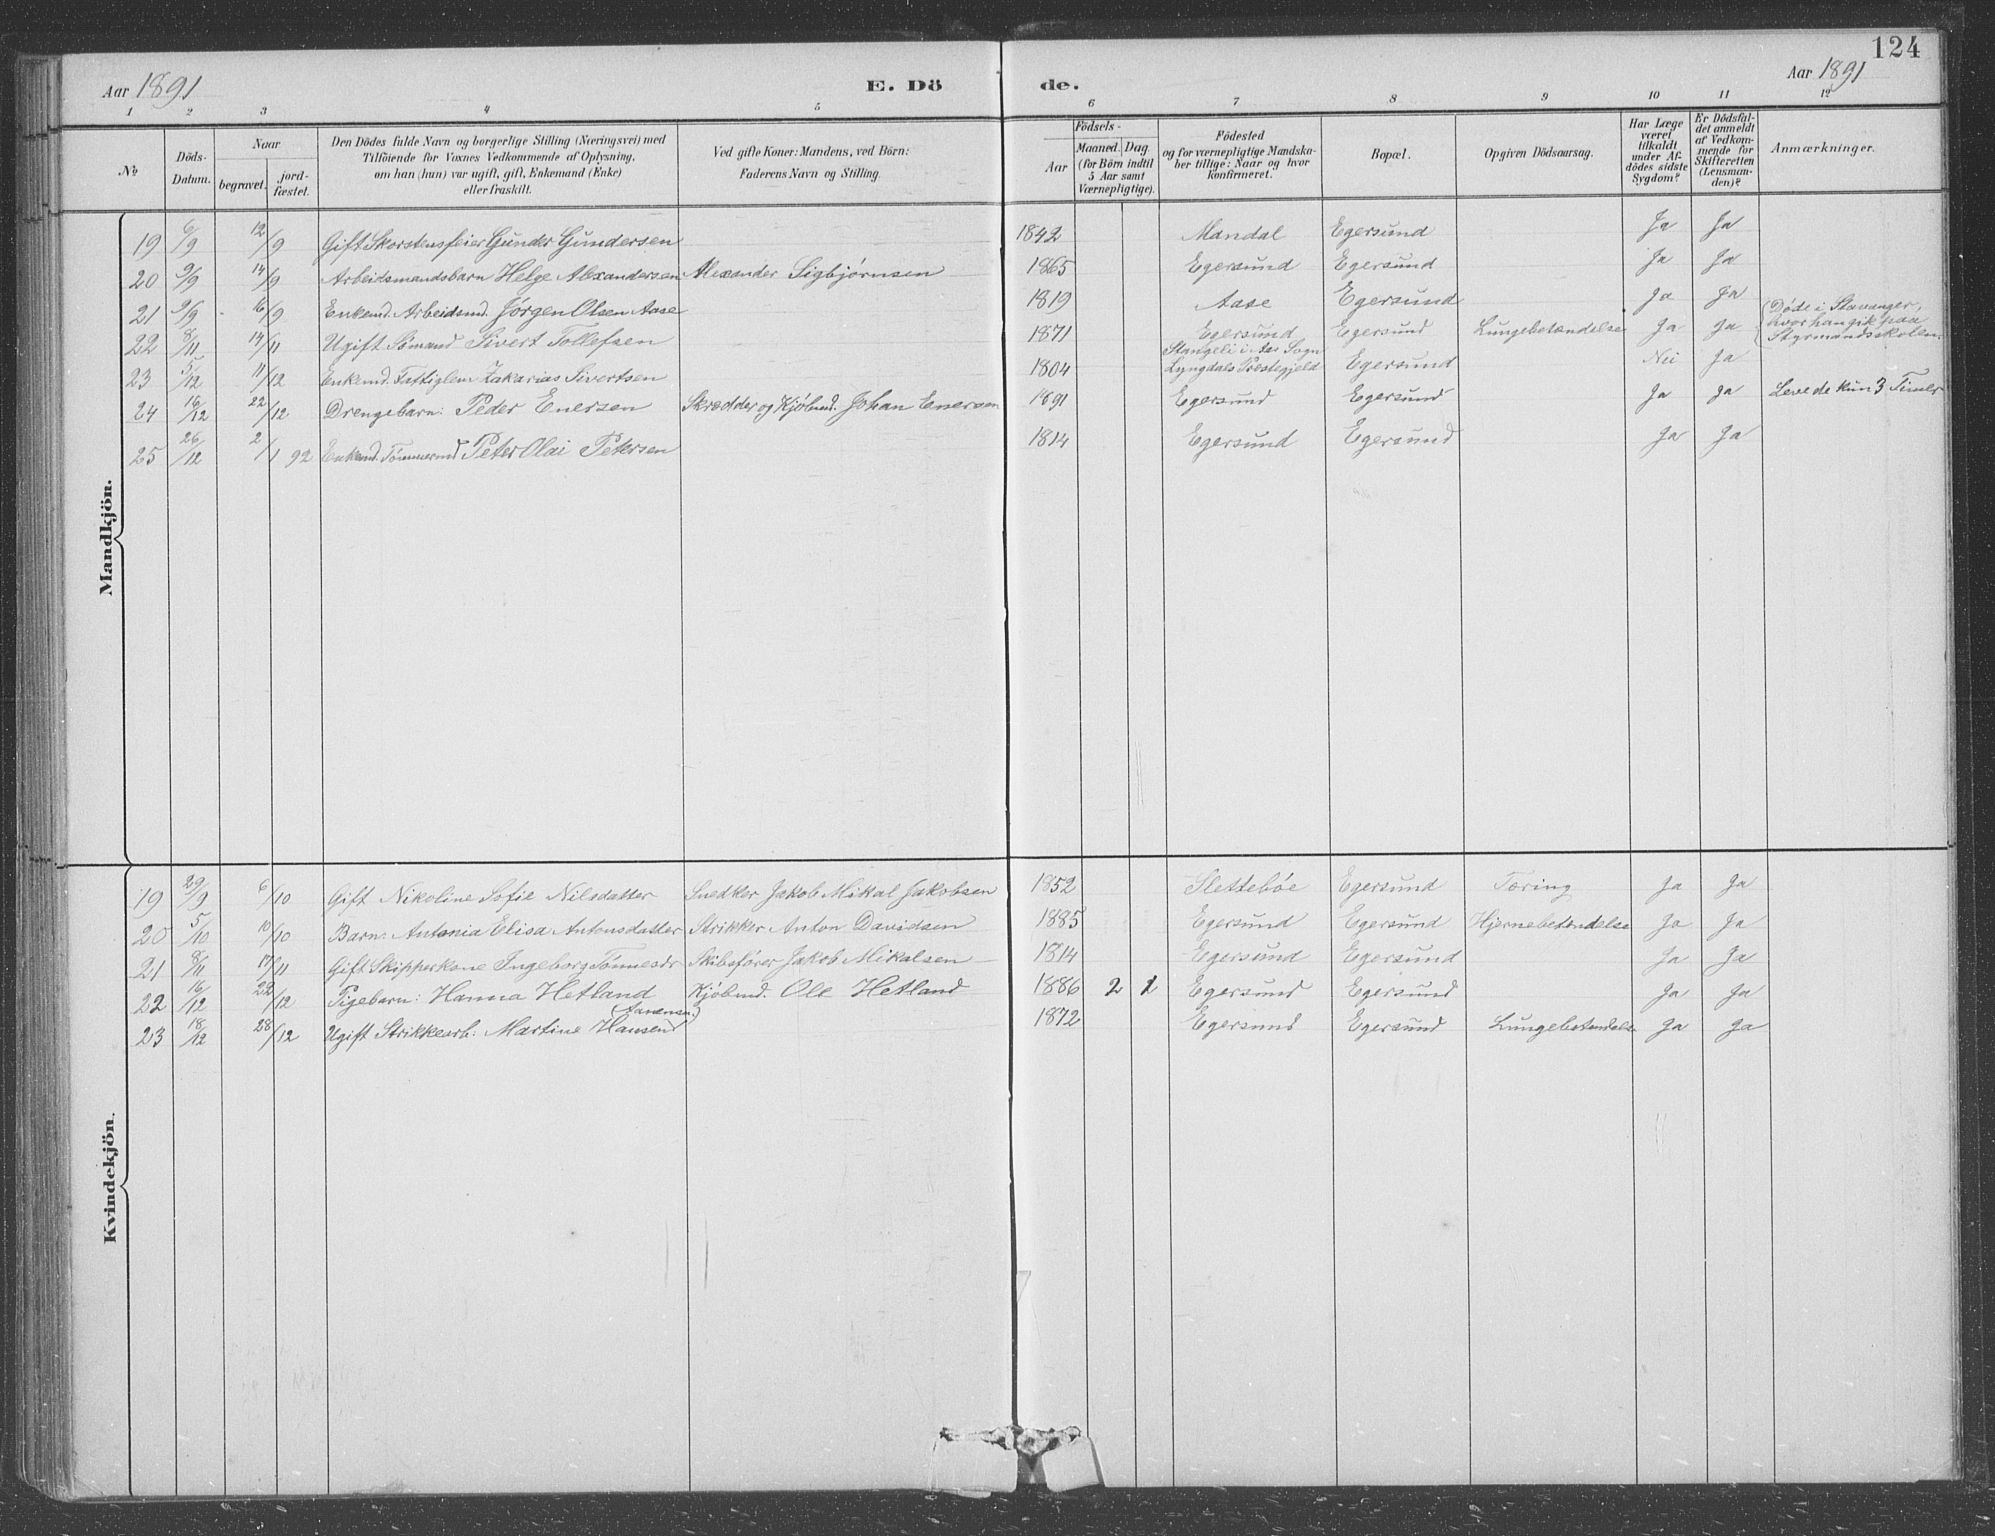 124
Aar 1891 E. Dö de. Aar 1891
1 2 3 4 5 6 7 8 9 10 11 12
No
Döds-Datum.
Naar
begravet. jordfæstet.
Den Dödes fulde Navn og borgerlige Stilling (Næringsvei) med
Tilföiende for Voxnes Vedkommende af Oplysning,
om han (hun) var ugift, gift, Enkemand (Enke)
eller fraskilt.
Ved gifte Koner: Mandens, ved Börn:
Faderens Navn og Stilling.
Födsels-
Aar Maaned. Dag.
(for Börn indtil
5 Aar samt
Værnepligtige).
Födested
og for værnepligtige Mandska-
ber tillige: Naar og hvor
konfirmeret.
Bopæl.
Opgiven Dödsaarsag.
Har Læge
været
tilkaldt
under Af-
dödes sidste
Sygdom?
Er Dödsfal-
det anmeldt
af Vedkom-
mende for
Skifteretten
(Lensman-
den)?
Anmærkninger.
Mandkjön.
19 6/9 12/9 Gift Skorstensfeier Gunder Gundersen 1842 Mandal Egersund Ja Ja
20 9/9 14/9 Arbeidsmandsbarn Helge Alexandersen Alexander Sigbjørnsen 1865 Egersund Egersund Ja Ja
21 9/9 16/9 Enkemd. Arbeidsmd. Jørgen Olsen Aase 1819 Aase Egersund Ja Ja
22 8/11 14/11 Ugift Sømand Sivert Tollefsen 1871 Egersund Egersund Lungebetændelse Ja Ja (Døde i Stavanger, hvor han gik paa Styrmandsskolen.
23 5/12 11/12 Enkemd. Fattiglem Zakarias Sivertsen 1804 Stangeli i Aas Sogn Lyngdals Præstegjeld Egersund Nei Ja
24 16/12 22/12 Drengebarn: Peder Enersen Skrædder og Kjøbmd. Johan Enersen 1891 Egersund Egersund Ja Ja Levede kun 3 Timer
25 26/12 2/1 92 Enkemd. Tømmermd Peter Olai Petersen 1814 Egersund Egersund Ja Ja
Kvindekjön.
19 29/9 6/10 Gift Nikoline Sofie Nilsdatter Snedker Jakob Mikal Jakobsen 1852 Slettebøe Egersund Tæring Ja Ja
20 5/10 10/10 Barn: Antonia Elisa Antonsdatter Strikker Anton Davidsen 1885 Egersund Egersund Hjernebetændelse Ja Ja
21 8/11 17/11 Gift Skipperkone Ingeborg Tønnesdr Skibsfører Jakob Mikalsen 1814 Egersund Egersund Ja Ja
22 16/12 22/12 Pigebarn: Hanna Hetland Kjøbmd. Ole Hetland 1886 2 1 Egersund Egersund Ja Ja
23 18/12 28/12 Ugift Strikkearb: Martine Hansen 1872 Egersund Egersund Lungebetændelse Ja Ja